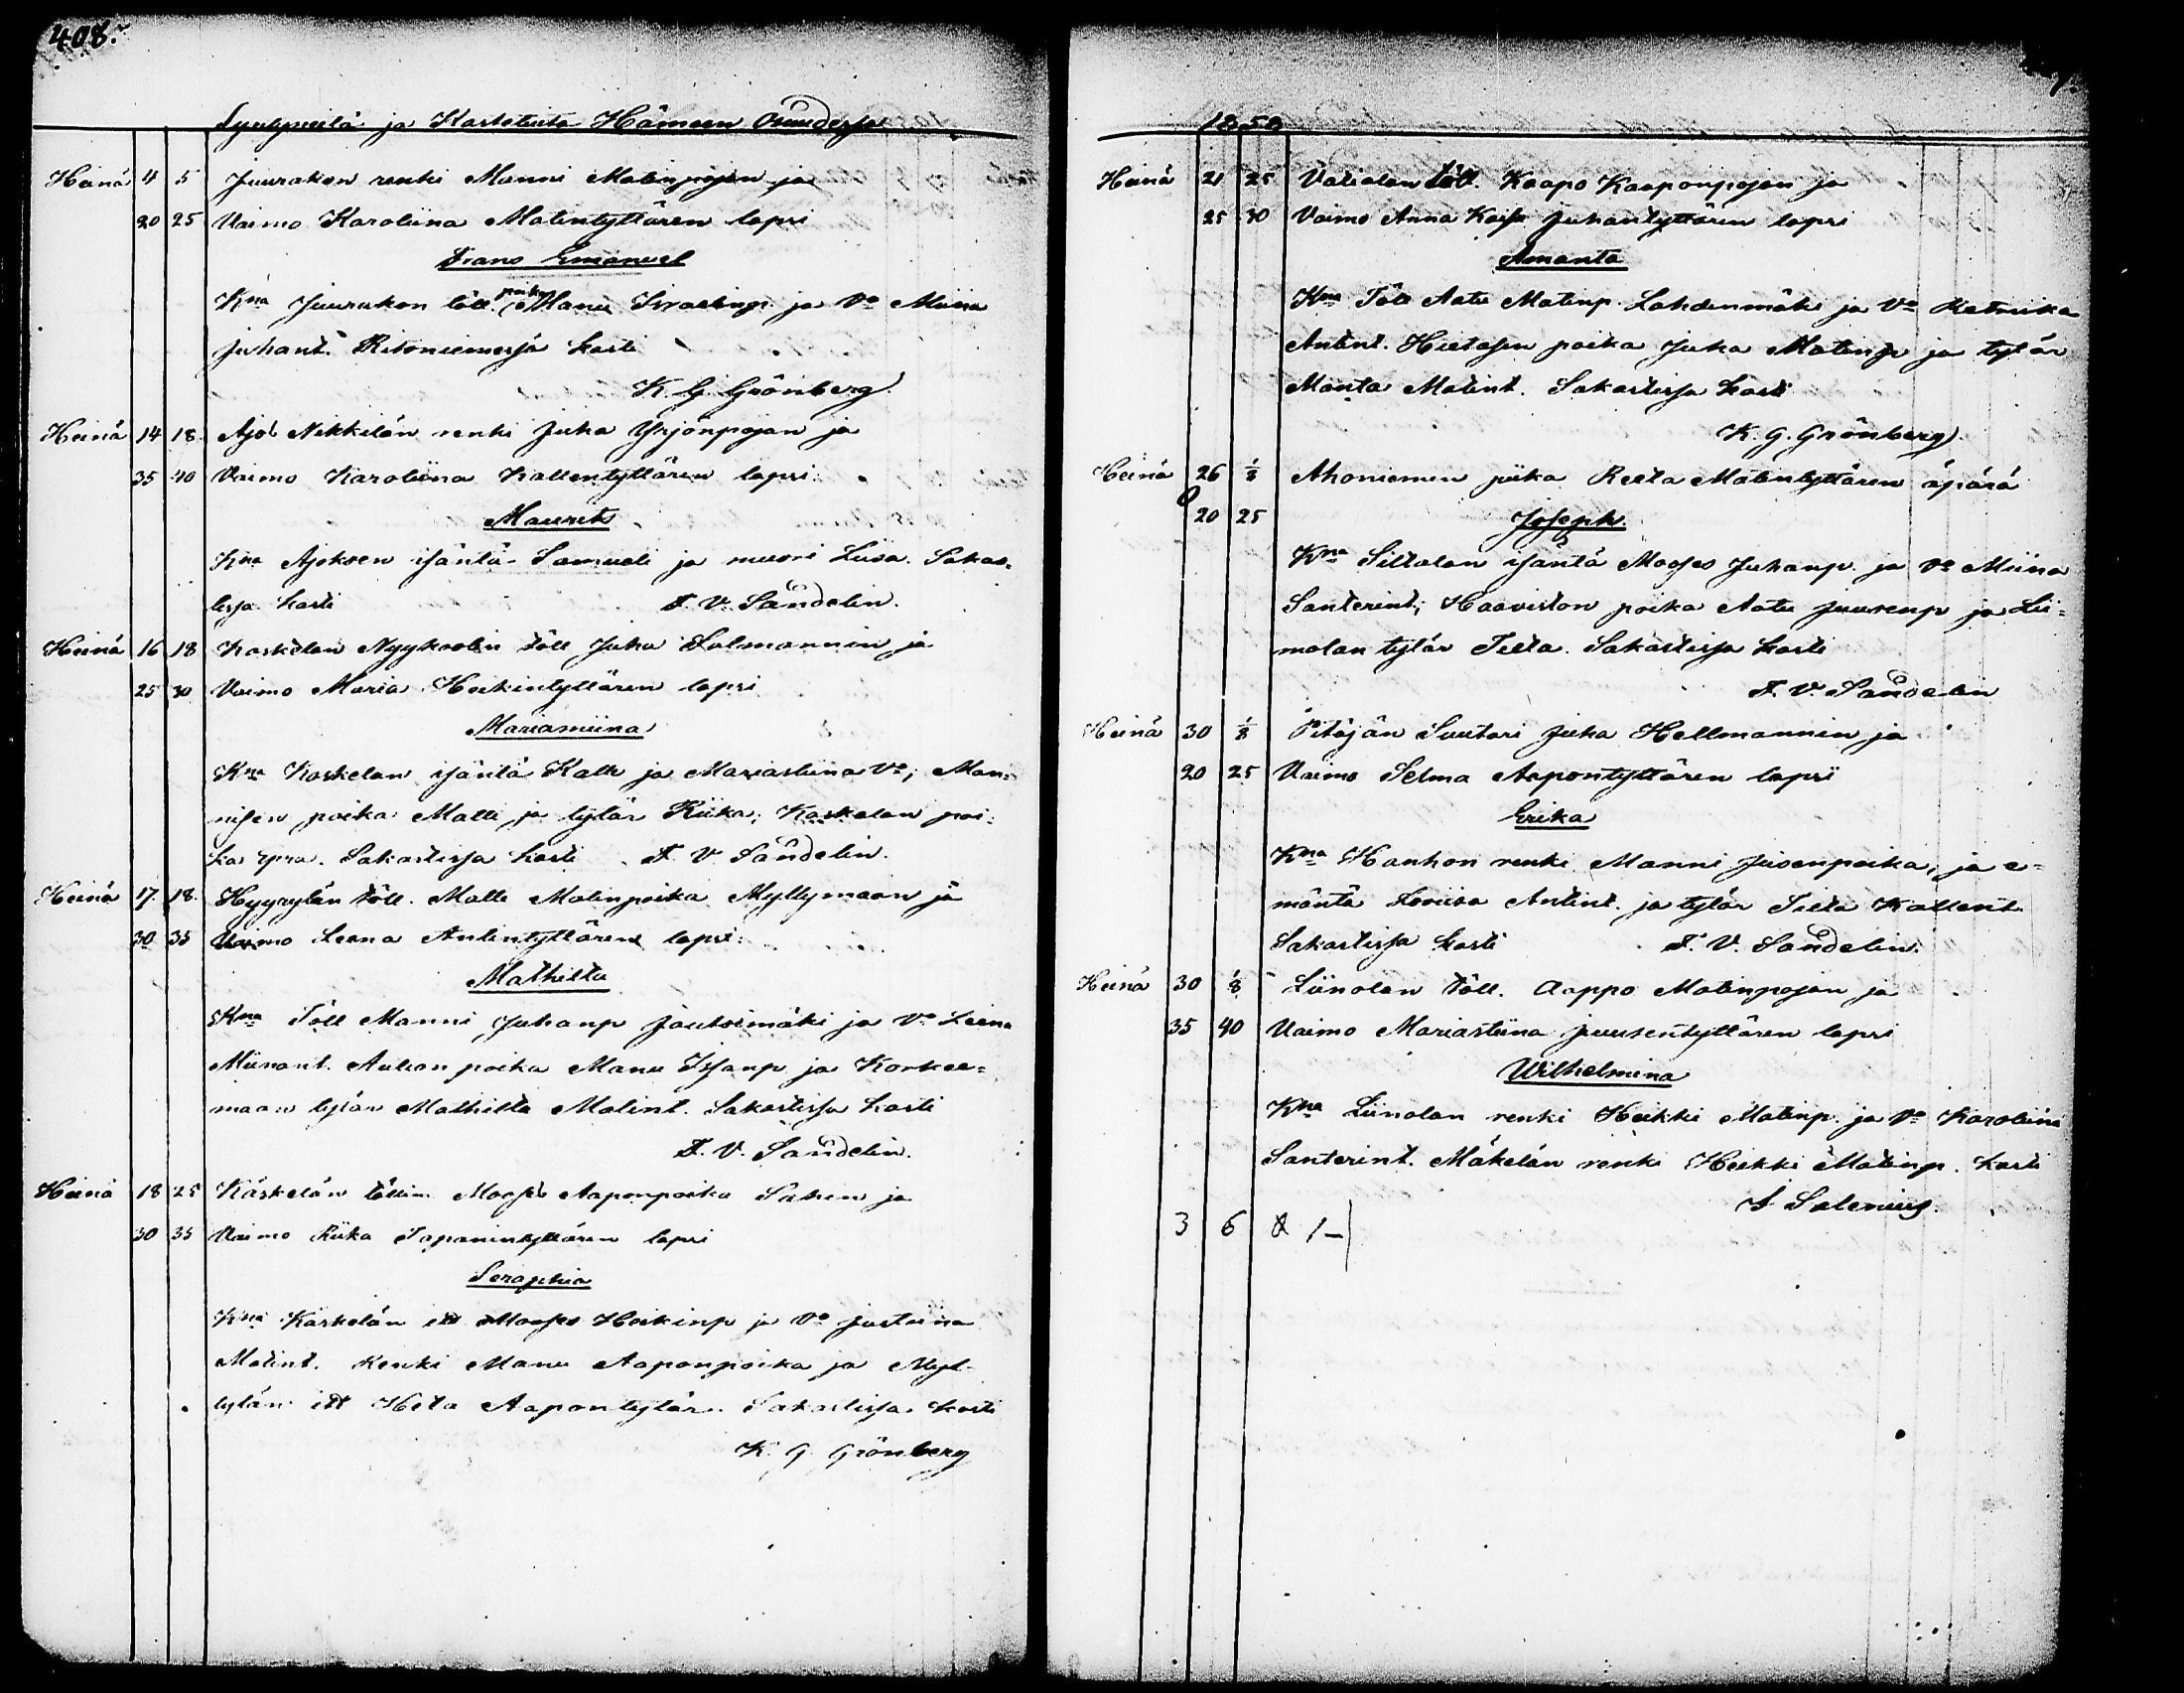 408.
Syntyneitä ja Kastetuita Hämeen Osuudessa
Heinä 4 5 Juurakon renki Manni Matinpojan ja
20 25 Vaimo Karoliina Matintyttären lapsi
Frans Emanuel
Kna Juurakon töll. poika Manu Israelinp. ja Vo Miina
Juhant. Ritoniemessä kasti
K. G. Grönberg
Heinä 14 18. Ajos Nikkilän renki Juka Yrjönpojan ja
35 40 Vaimo Karoliina Kallentyttären lapsi
Maurits
Kna Ajoksen isäntä Samueli ja muori Liisa. Sakas-
tissa kasti F. V. Sandelin.
Heinä 16 18 Kaskelan Nyykoolin töll Juha Salmannin ja
25 30 Vaimo Maria Heikintyttären lapsi
Mariamiina
Kna Koskelan isäntä Kalle ja Mariastiina Vo, Man-
nisen poika Matti ja tytär Riika, Koskelan poi-
ka Sakastissa kasti F. V. Sandelin.
Heinä 17. 18. Hyyrylän töll. Matti Matinpoika Myllymaan ja
30 35 Vaimo Leena Antintyttären lapsi
Mathilta
Kna Töll Manni Juhanp Jautsimäki ja Vo Leena
Miinant. Aulion poika Manu Issanp ja Korkee-
maan tytär Mathilta Matint. Sakastissa kasti
F. V. Sandelin.
Heinä 18 25 Käskelän töllin Mooses Aaponpoika Sahen ja
30 35 Vaimo Riika Tapanintyttären lapsi
Seraphia
Kna Käskelän itt Mooses Heikinp ja Vo Justiina
Matint. Renki Manu Aaponpoika ja Myl-
lylän itt Heta Aapontytär. Sakastissa kasti
K. G. Grönberg
1858
Heinä 21 25 Valiolan töll. Kaapo Kaaponpojan ja
25 30 Vaimo Anna Kaisa Juhantyttären lapsi
Amanta
Kna Töll Aatu Matinp. Lahdenmäki ja Vo Katriika
Antint. Hietasen poika Juka Matinp ja tytär
Manta Matint. Sakastissa kasti
K. G. Grönberg.
Heinä 26 1/8 Ahoniemen piika Reeta Matintyttären äpärä
20 25 Joseph.
Kna Siltalan isäntä Mooses Juhanp. ja Vo Miina
Santerint; Haaviston poika Aatu Juusenp ja Lii-
molan tytär Tilta. Sakastissa kasti
F. V. Sandelin
Heinä 30 1/8 Pitäjän Suutari Juka Hellmannin ja
20 25 Vaimo Selma Aapontyttären lapsi
Erika
Kna Hanhon renki Manni Juosenpoika, ja e-
mäntä Loviisa Antint. ja tytär Tilta Kallent
Sakastissa kasti F. V. Sandelin.
Heinä 30 1/8 Liinolan töll. Aappo Matinpojan ja
35 40 Vaimo Mariastiina Juusentyttären lapsi
Wilhelmina
Kna Liinolan renki Heikki Matinp. ja Vo Karoliina
Santerint. Mäkelän renki Heikki Matinp. kasti
S. Salenius.
3 6 & 1-